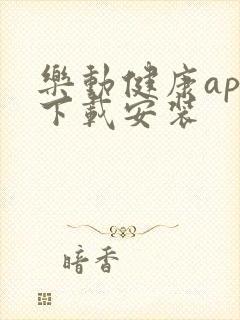 樂動健康ap
下載安裝
暗香